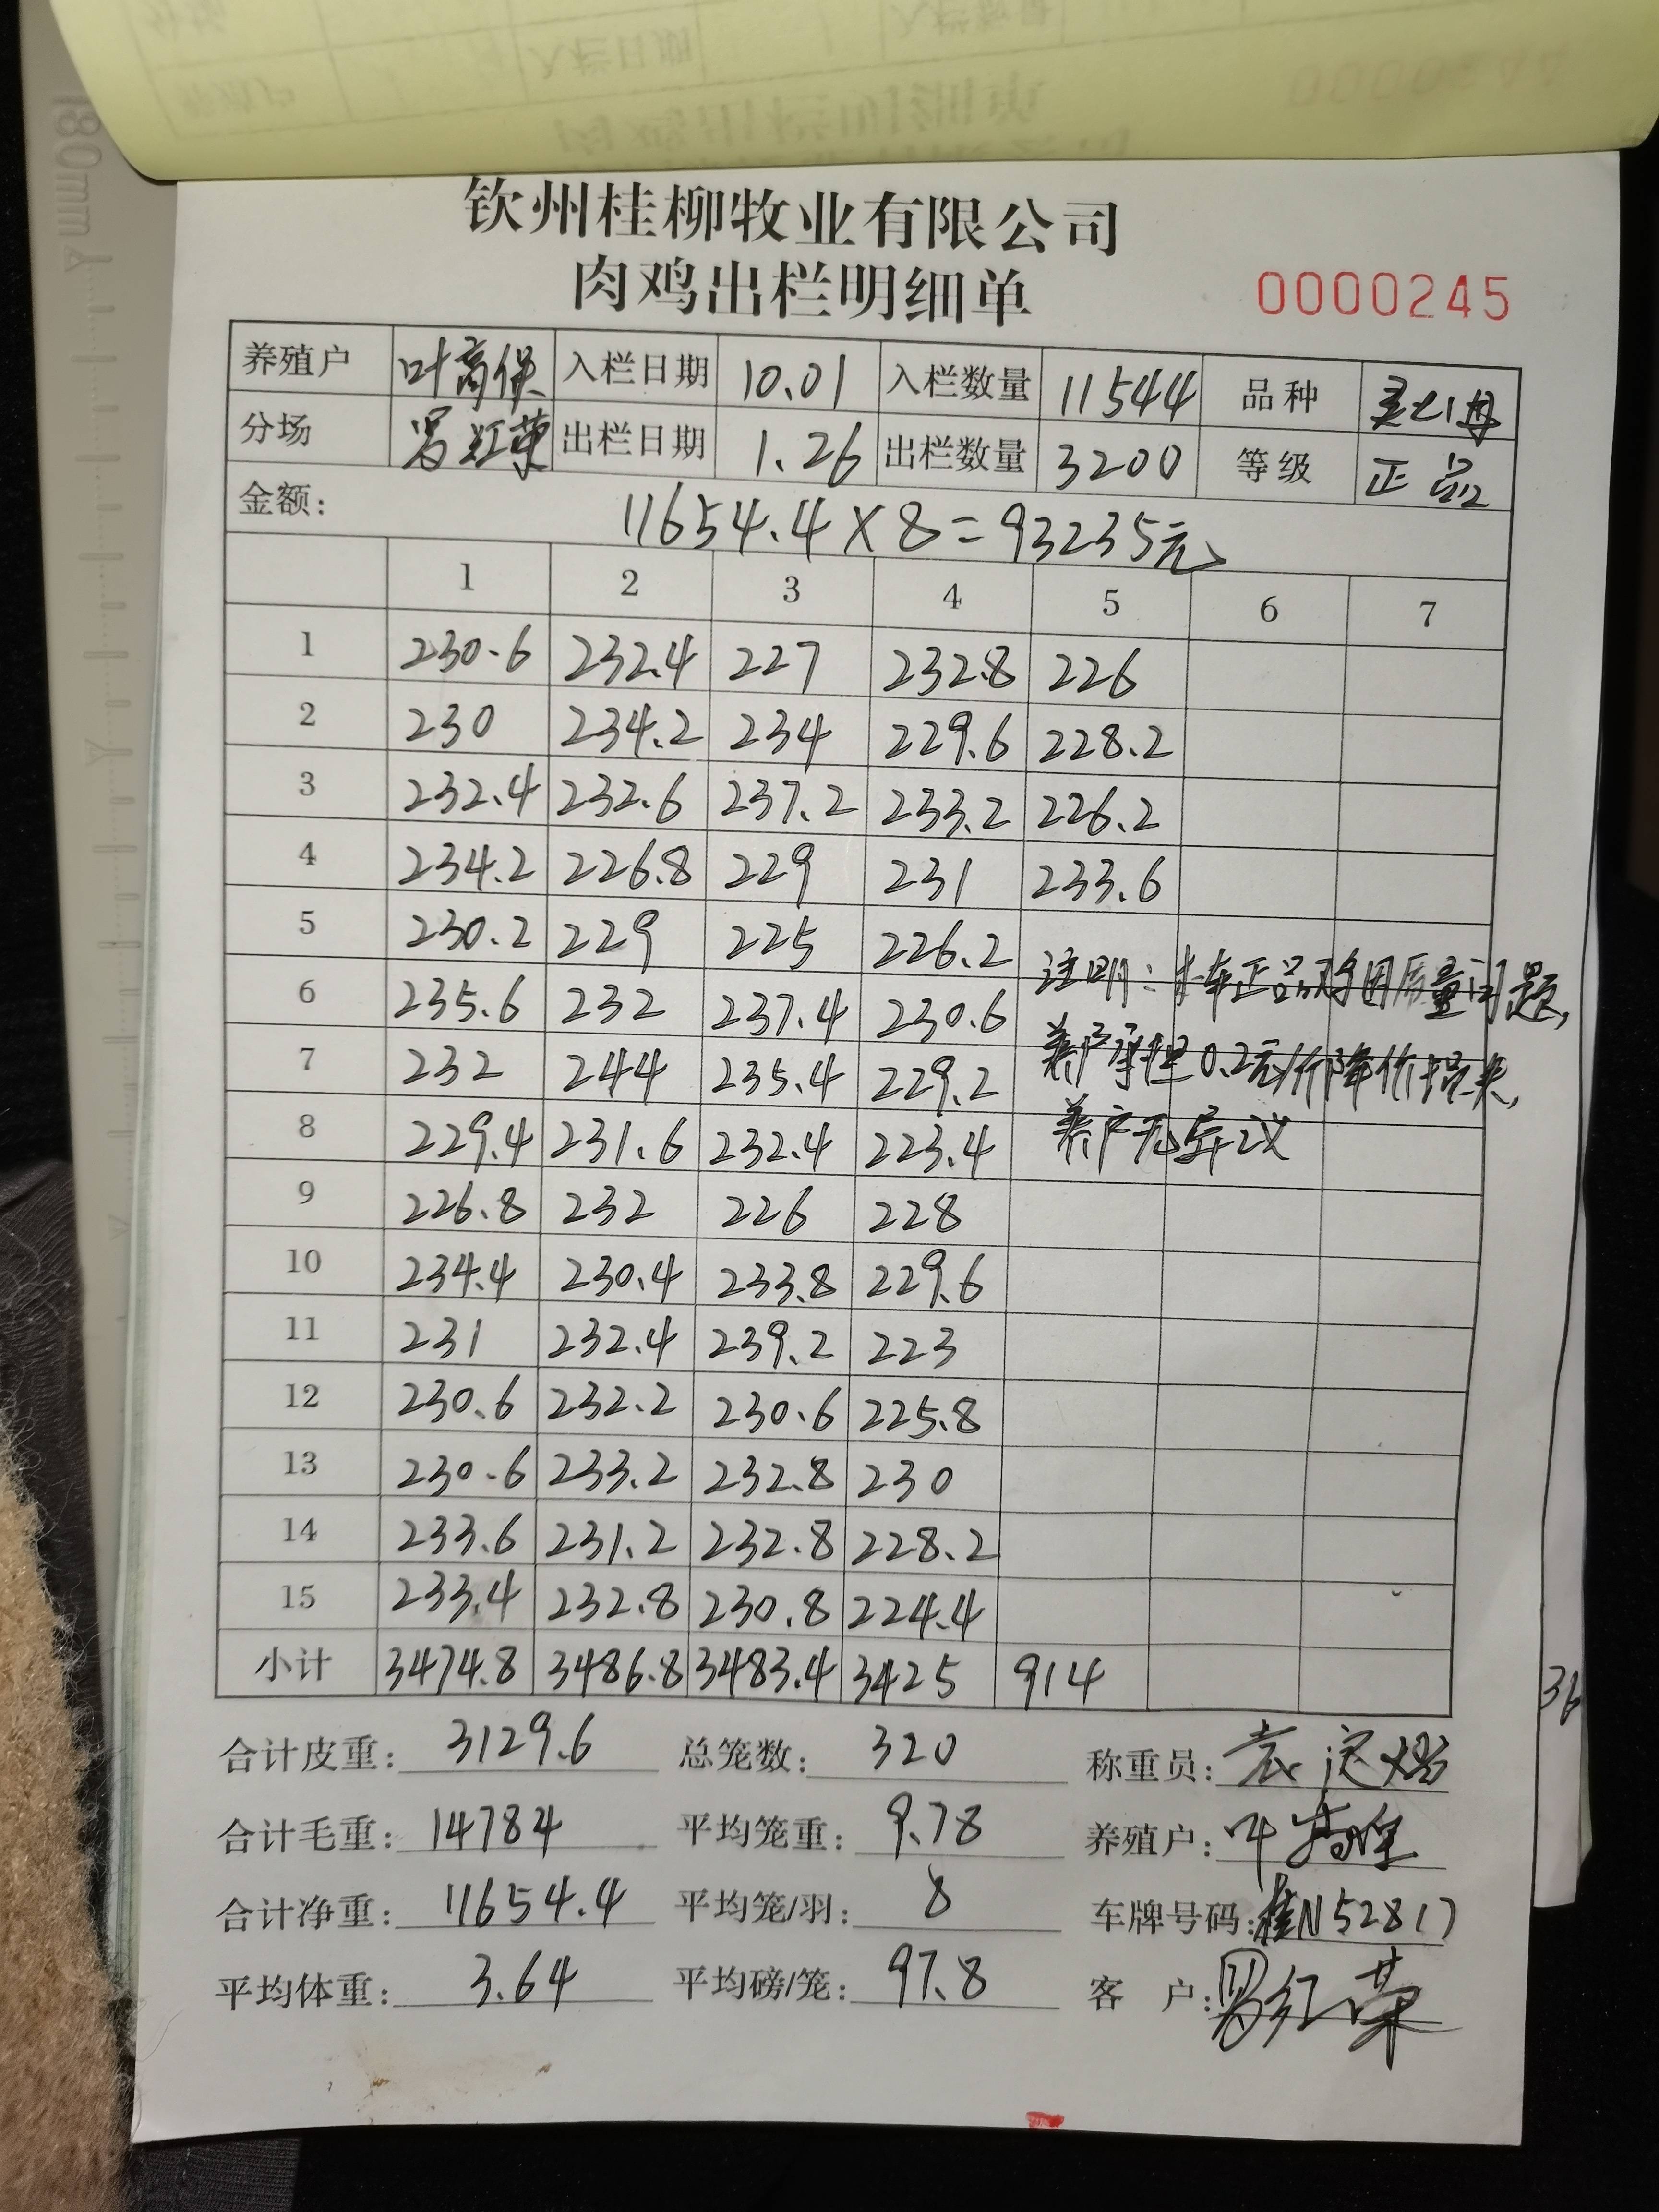 180mm
钦州桂柳牧业有限公司
肉鸡出栏明细单 0000245
养殖户 叶高保 入栏日期 10.01 入栏数量 11544 品种
分场 罗红荣 出栏日期 1.26 出栏数量 3200 等级 正品
金额: 11654.4×8=93235元
1 2 3 4 5 6 7
1 230.6 232.4 227 232.8 226
2 230 234.2 234 229.6 228.2
3 232.4 232.6 237.2 233.2 226.2
4 234.2 226.8 229 231 233.6
5 230.2 229 225 226.2
6 235.6 232 237.4 230.6
7 232 244 235.4 229.2
8 229.4 231.6 232.4 223.4
9 226.8 232 226 228
10 234.4 230.4 233.8 229.6
11 231 232.4 239.2 223
12 230.6 232.2 230.6 225.8
13 230.6 233.2 232.8 230
14 233.6 231.2 232.8 228.2
15 233.4 232.8 230.8 224.4
注明:本车正品鸡因质量问题,
养户承担0.2元/斤降价损失,
养户无异议
小计 3474.8 3486.8 3483.4 3425 914
合计皮重: 3129.6 总笼数: 320 称重员:
合计毛重: 14784 平均笼重: 9.78 养殖户: 叶高保
合计净重: 11654.4 平均笼/羽: 8 车牌号码: 桂N52817
平均体重: 3.64 平均磅/笼: 97.8 客户: 罗红荣